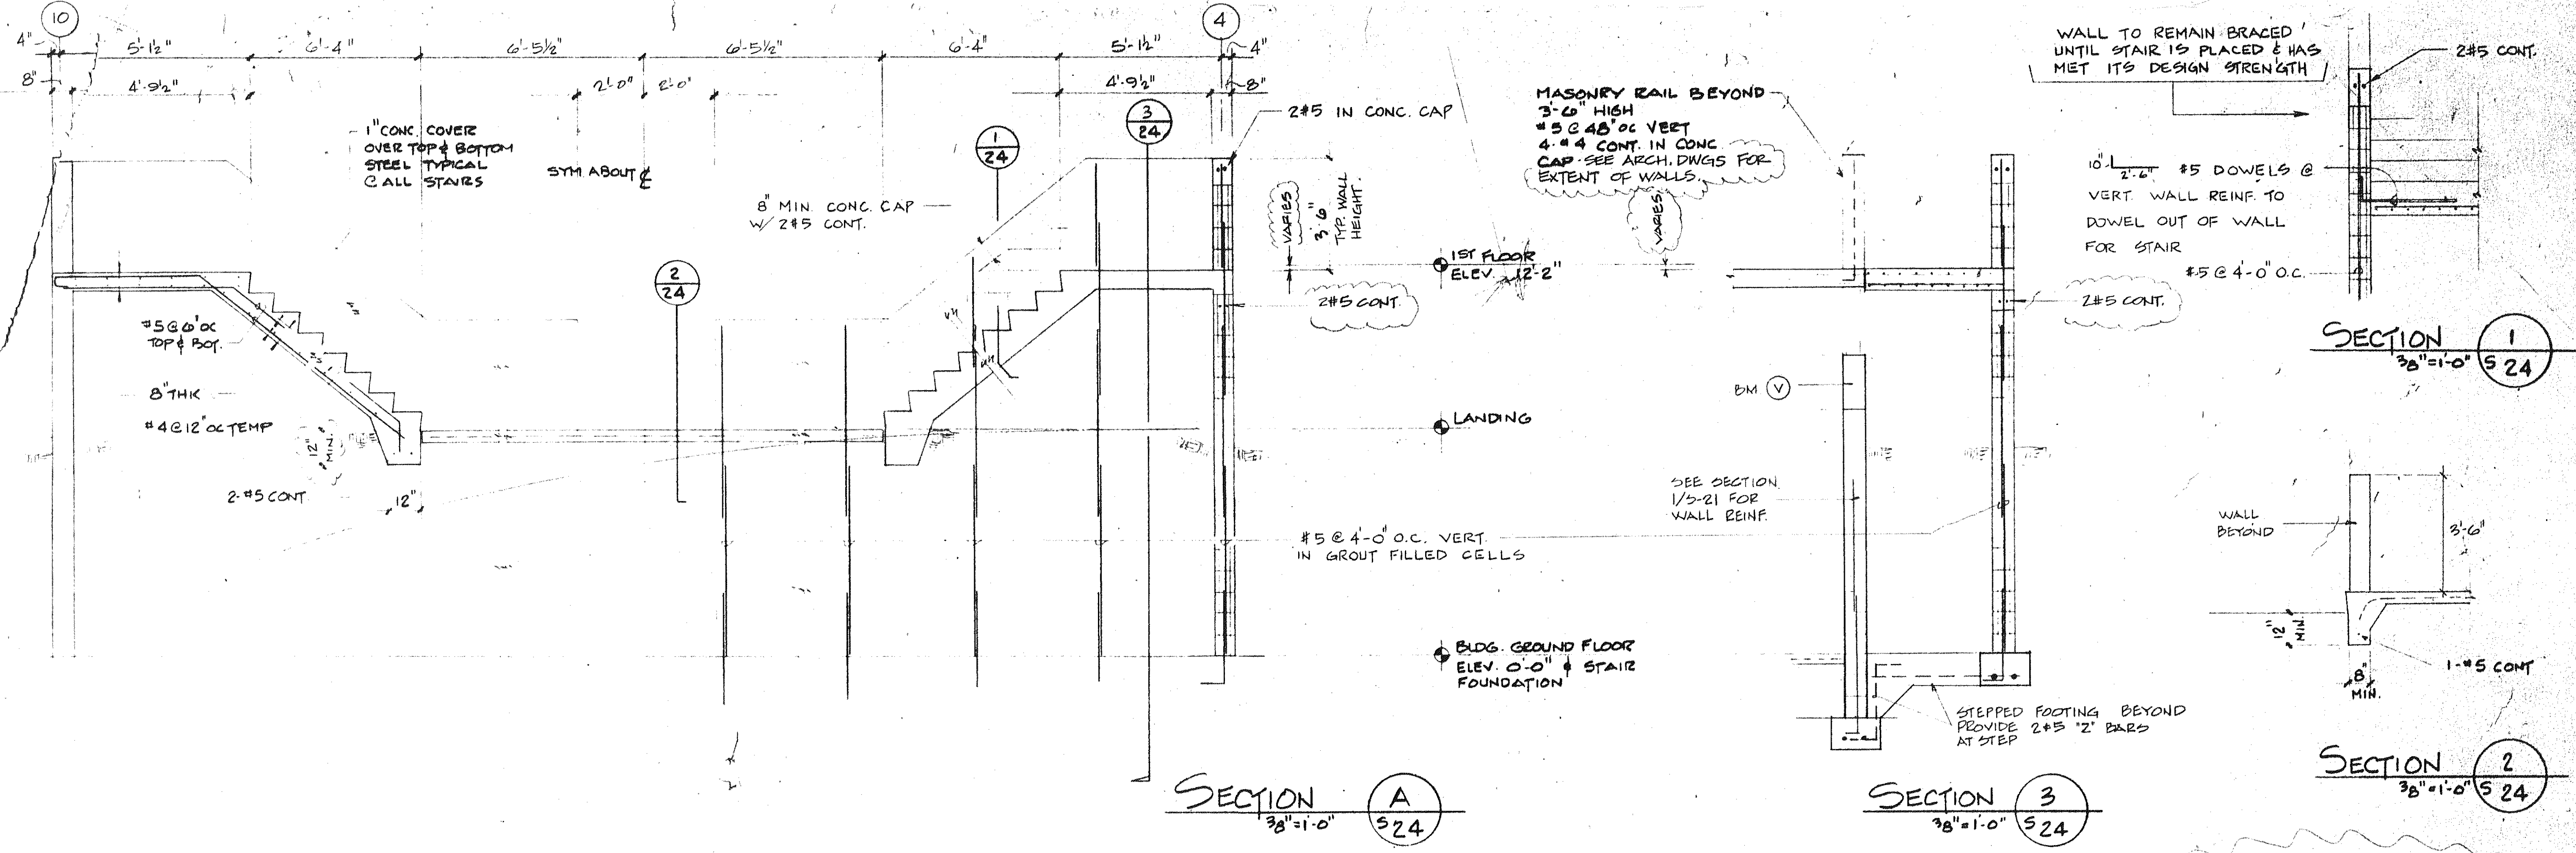 10
4
4"
5'-1½"
6'-4"
6'-5½"
6'-5½"
6'-4"
5'-1½"
4"
8"
4'-9½"
2'-0"
2'-0"
4'-9½"
8"
1" CONC. COVER
OVER TOP & BOTTOM
STEEL TYPICAL
@ ALL STAIRS
SYM. ABOUT ℄
8" MIN. CONC. CAP
W/ 2#5 CONT.
1
24
3
24
2
24
2#5 IN CONC. CAP
VARIES
3'-6"
TYP. WALL
HEIGHT.
2#5 CONT.
#5 @ 6" OC
TOP & BOT.
8" THK
#4 @ 12" OC TEMP
12"
MIN.
2-#5 CONT
12"
1ST FLOOR
ELEV. 12'-2"
LANDING
#5 @ 4'-0" O.C. VERT.
IN GROUT FILLED CELLS
BLDG. GROUND FLOOR
ELEV. 0'-0" & STAIR
FOUNDATION
SECTION A
3/8"=1'-0" S24
MASONRY RAIL BEYOND
3'-6" HIGH
#5 @ 48" OC VERT
4-#4 CONT. IN CONC
CAP-SEE ARCH. DWGS FOR
EXTENT OF WALLS.
VARIES
2#5 CONT.
BM V
SEE SECTION
1/S-21 FOR
WALL REINF.
STEPPED FOOTING BEYOND
PROVIDE 2#5 "Z" BARS
AT STEP
SECTION 3
3/8"=1'-0" S24
WALL TO REMAIN BRACED
UNTIL STAIR IS PLACED & HAS
MET ITS DESIGN STRENGTH
2#5 CONT.
10"
2'-6"
#5 DOWELS @
VERT. WALL REINF. TO
DOWEL OUT OF WALL
FOR STAIR
#5 @ 4'-0" O.C.
SECTION 1
3/8"=1'-0" S24
WALL
BEYOND
3'-6"
12"
MIN.
1-#5 CONT
8"
MIN.
SECTION 2
3/8"=1'-0" S24